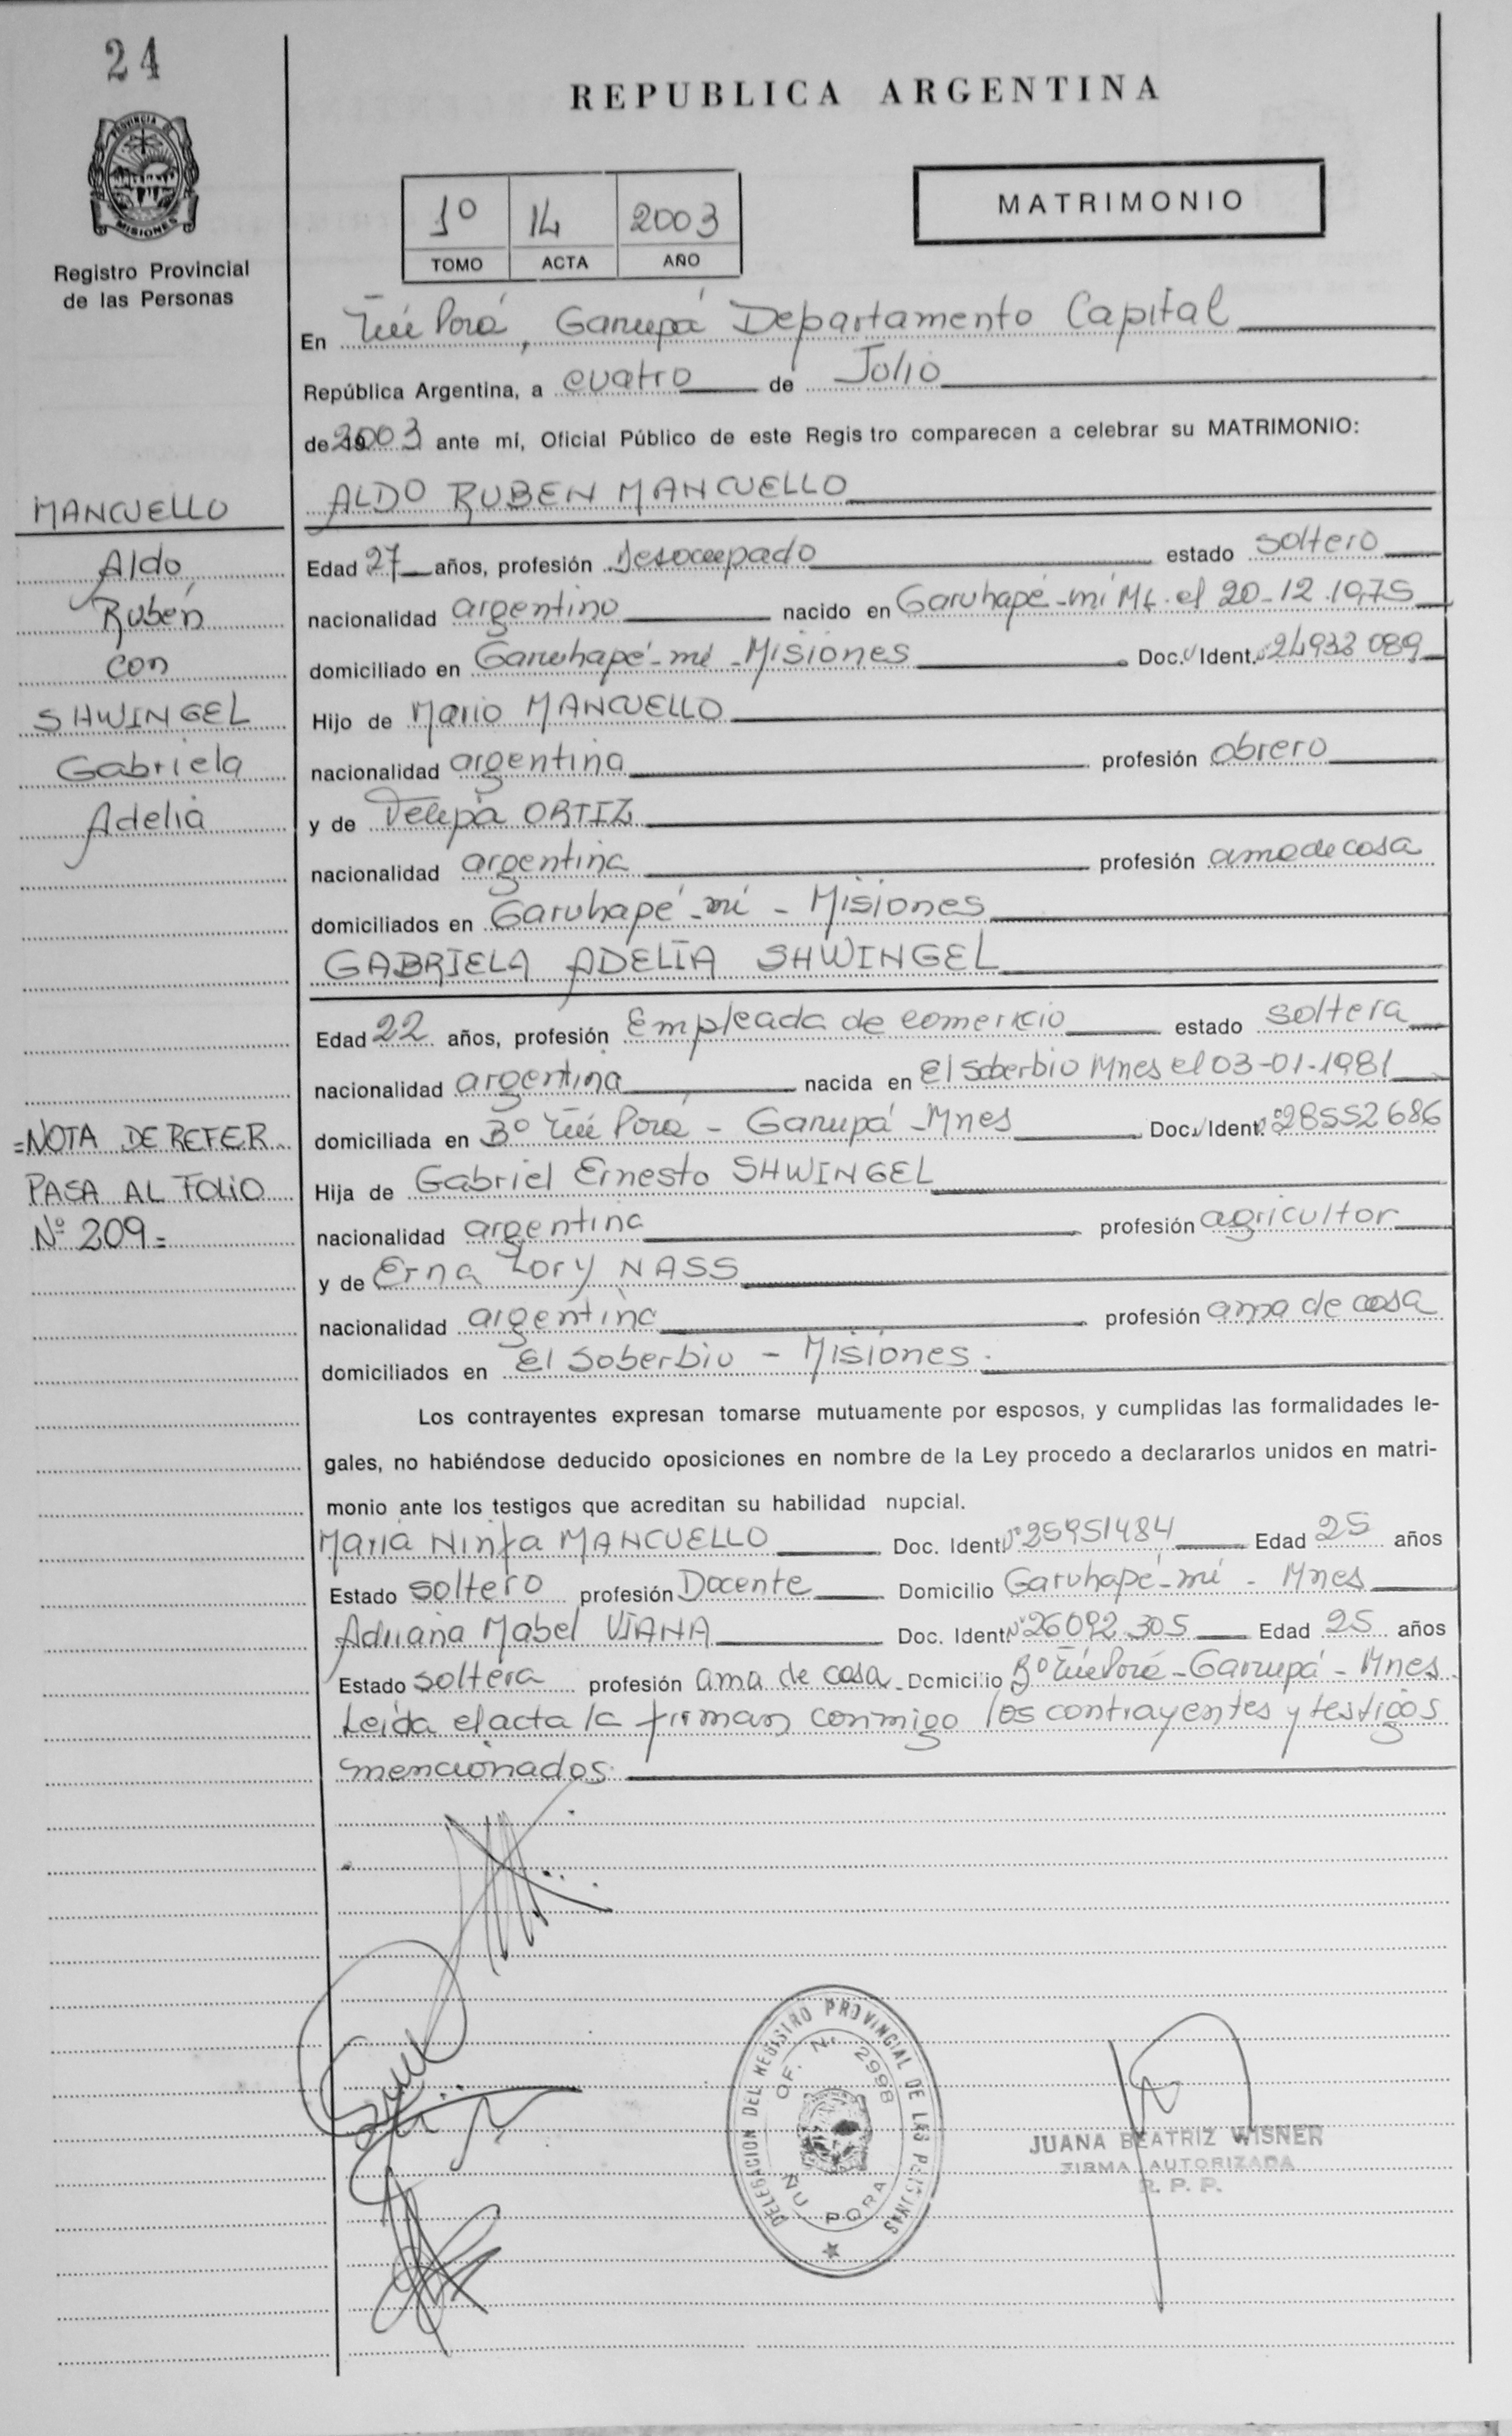 24
REPUBLICA ARGENTINA
PROVINCIA DE
MISIONES
Registro Provincial
de las Personas
1º 14 2003
TOMO ACTA AÑO
MATRIMONIO
En Ñu Porá, Garupá Departamento Capital
República Argentina, a cuatro de Julio
de 2003 ante mí, Oficial Público de este Regis tro comparecen a celebrar su MATRIMONIO:
MANCUELLO
Aldo
Rubén
con
SHWINGEL
Gabriela
Adelia
=NOTA DE REFER
PASA AL FOLIO
Nº 209=
ALDO RUBEN MANCUELLO
Edad 27 años, profesión Desocupado estado soltero
nacionalidad argentino nacido en Garuhapé-mí el 20-12-1975
domiciliado en Garuhapé-mí - Misiones Doc. Ident. Nº 24933089
Hijo de Mario MANCUELLO
nacionalidad argentina profesión obrero
y de ORTIZ
nacionalidad argentina profesión ama de casa
domiciliados en Garuhapé-mí - Misiones
GABRIELA ADELIA SHWINGEL
Edad 22 años, profesión Empleada de comercio estado soltera
nacionalidad argentina nacida en El Soberbio Mnes el 03-01-1981
domiciliada en Bº Ñu Porá - Garupá - Mnes Doc. Ident. Nº 28552686
Hija de Gabriel Ernesto SHWINGEL
nacionalidad argentina profesión agricultor
y de Erna Lory NASS
nacionalidad argentina profesión ama de casa
domiciliados en El Soberbio - Misiones.
Los contrayentes expresan tomarse mutuamente por esposos, y cumplidas las formalidades le-
gales, no habiéndose deducido oposiciones en nombre de la Ley procedo a declararlos unidos en matri-
monio ante los testigos que acreditan su habilidad nupcial.
Maria Ninfa MANCUELLO Doc. Ident Nº 25951484 Edad 25 años
Estado soltero profesión Docente Domicilio Garuhapé-mí - Mnes
Adriana Mabel VIANA Doc. Ident Nº 26092305 Edad 25 años
Estado soltera profesión ama de casa Domicilio Bº Ñu Porá - Garupá - Mnes
Leida el acta la firman conmigo los contrayentes y testigos
mencionados.
DELEGACION DEL REGISTRO PROVINCIAL DE LAS PERSONAS
OF. Nr. 2998
ÑU PORA
JUANA BEATRIZ WISNER
FIRMA AUTORIZADA
R. P. P.